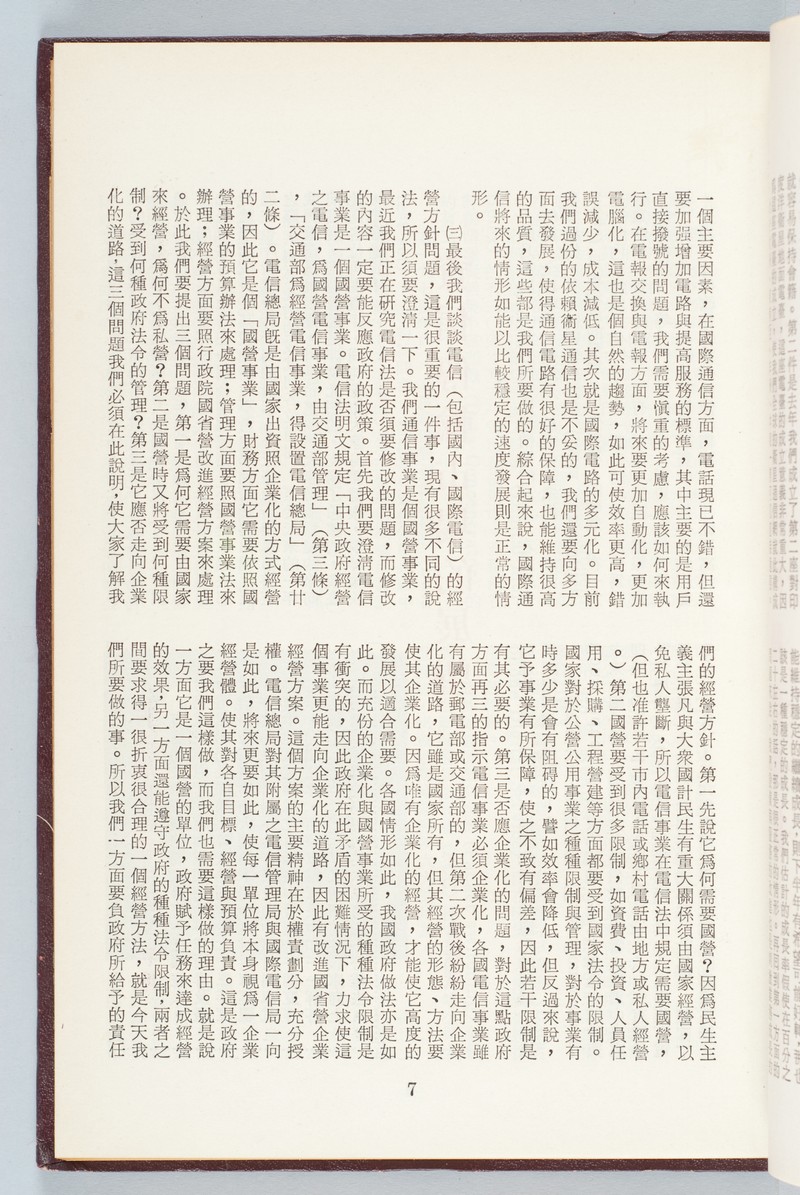 一個主要因素，在國際通信方面，電話現已不錯，但還
要加强增加電路與提高服務的標準，其中主要的是用戶
直接撥號的問題，我們需要愼重的考慮，應該如何來執
行。在電報交換與電報方面，將來要更加自動化，更加
電腦化，這也是個自然的趨勢，如此可使效率更高，錯
誤減少，成本減低。其次就是國際電路的多元化。目前
我們過份的依賴衞星通信也是不妥的，我們還要向多方
面去發展，使得通信電路有很好的保障，也能維持很高
的品質，這些都是我們所要做的。綜合起來說，國際通
信將來的情形如能以比較穩定的速度發展則是正常的情
形。
㈢最後我們談談電信（包括國內、國際電信）的經
營方針問題，這是很重要的一件事，現有很多不同的說
法，所以須要澄淸一下。我們通信事業是個國營事業，
最近我們正在硏究電信法是否須要修改的問題，而修改
的內容一定要能反應政府的政策。首先我們要澄淸電信
事業是一個國營事業。電信法明文規定「中央政府經營
之電信，爲國營電信事業，由交通部管理」（第三條）
，「交通部爲經營電信事業，得設置電信總局」（第廿
二條）。電信總局旣是由國家出資照企業化的方式經營
的，因此它是個「國營事業」，財務方面它需要依照國
營事業的預算辦法來處理；管理方面要照國營事業法來
辦理；經營方面要照行政院國省營改進經營方案來處理
。於此我們要提出三個問題，第一是爲何它需要由國家
來經營，爲何不爲私營？第二是國營時又將受到何種限
制？受到何種政府法令的管理？第三是它應否走向企業
化的道路，這三個問題我們必須在此說明，使大家了解我
們的經營方針。第一先說它爲何需要國營？因爲民生主
義主張凡與大衆國計民生有重大關係須由國家經營，以
免私人壟斷，所以電信事業在電信法中規定需要國營，
（但也准許若干市內電話或鄕村電話由地方或私人經營
。）第二國營要受到很多限制，如資費、投資、人員任
用、採購、工程營建等方面都要受到國家法令的限制。
國家對於公營公用事業之種種限制與管理，對於事業有
時多少是會有阻碍的，譬如效率會降低，但反過來說，
它予事業有所保障，使之不致有偏差，因此若干限制是
有其必要的。第三是否應企業化的問題，對於這點政府
方面再三的指示電信事業必須企業化，各國電信事業雖
有屬於郵電部或交通部的，但第二次戰後紛紛走向企業
化的道路，它雖是國家所有，但其經營的形態、方法要
使其企業化。因爲唯有企業化的經營，才能使它高度的
發展以適合需要。各國情形如此，我國政府做法亦是如
此。而充份的企業化與國營事業所受的種種法令限制是
有衝突的，因此政府在此矛盾的困難情況下，力求使這
個事業更能走向企業化的道路，因此有改進國省營企業
經營方案。這個方案的主要精神在於權責劃分，充分授
權。電信總局對其附屬之電信管理局與國際電信局一向
是如此，將來更要如此，使每一單位將本身視爲一企業
經營體。使其對各自目標、經營與預算負責。這是政府
之要我們這樣做，而我們也需要這樣做的理由。就是說
一方面它是一個國營的單位，政府賦予任務來達成經營
的效果，另一方面還能遵守政府的種種法令限制，兩者之
間要求得一很折衷很合理的一個經營方法，就是今天我
們所要做的事。所以我們一方面要負政府所給予的責任
7